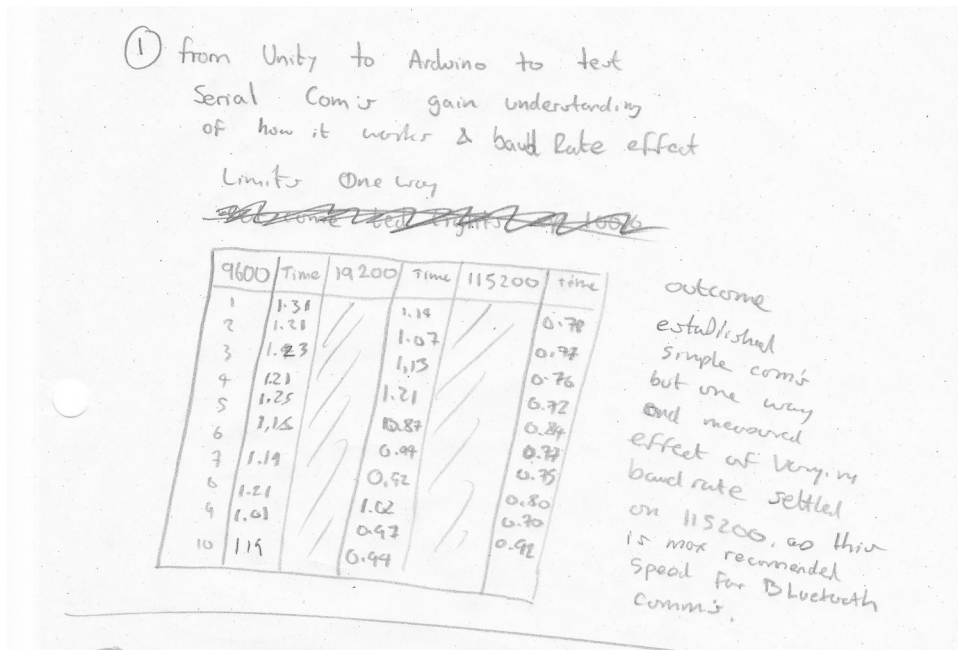 ① from Unity to Arduino to test
Serial Com's gain understanding
of how it works & baud Rate effect
Limits One way
9600 Time 19200 Time 115200 Time
1 1.31 1.19 0.78
2 1.21 1.07 0.77
3 1.23 1,13 0.76
4 1.21 1.21 0.72
5 1.25 0.87 0.84
6 1,15 0.99 0.77
7 1.19 0.92 0.75
8 1.21 1.02 0.80
9 1.01 0.97 0.70
10 119 0.99 0.92
outcome
established
simple com's
but one way
and measured
effect of Varying
baud rate settled
on 115200, as this
is max recomended
Speed for Bluetooth
Comm's.